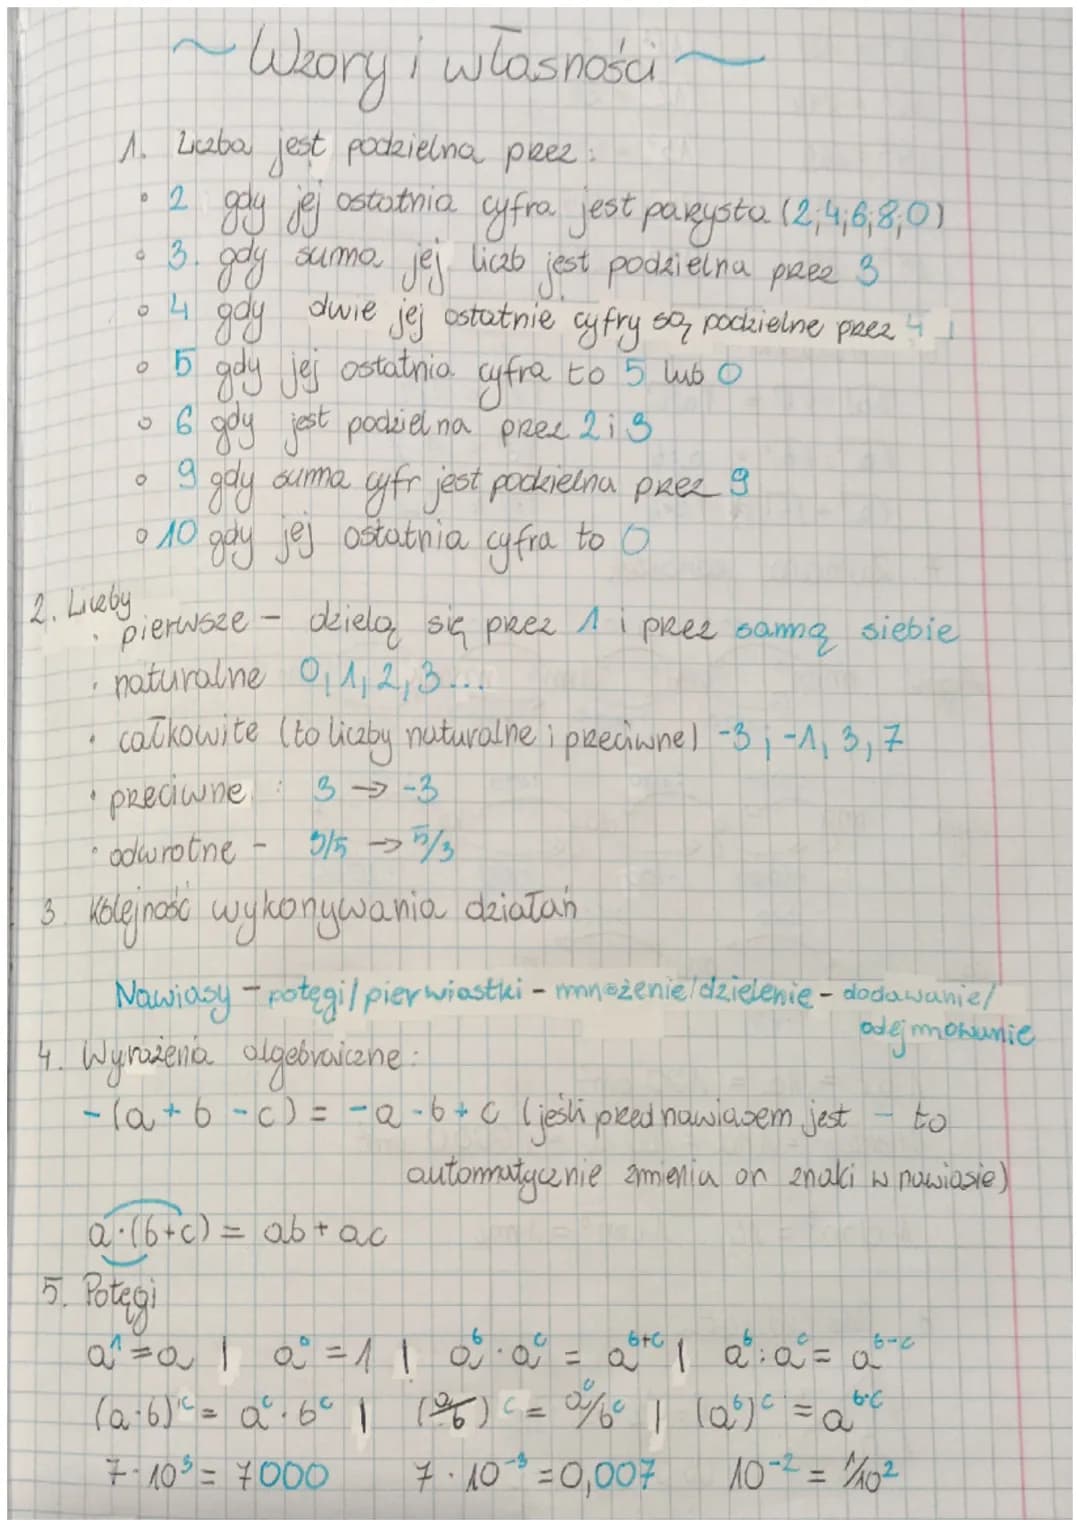 ~ Wzory i własności ~
1. Liczba jest podzielna przez:
• 2 gdy jej ostatnia cyfra jest parzysta (2,4,6,8,0)
• 3. gdy suma jej liczb jest podzielna przez 3
• 4 gdy dwie jej ostatnie cyfry są podzielne przez 4
• 5 gdy jej ostatnia cyfra to 5 lub 0
• 6 gdy jest podzielna przez 2 i 3
• 9 gdy suma cyfr jest podzielna przez 9
• 10 gdy jej ostatnia cyfra to 0
2. Liczby
• pierwsze - dzielą się przez 1 i przez samą siebie
• naturalne 0,1,2,3...
• całkowite (to liczby naturalne i przeciwne) -3; -1, 3, 7
• przeciwne : 3 → -3
• odwrotne - 3/5 → 5/3
3. Kolejność wykonywania działań
Nawiasy - potęgi/pierwiastki - mnożenie/dzielenie - dodawanie/
odejmowanie
4. Wyrażenia algebraiczne:
-(a+b-c) = -a-b+c (jeśli przed nawiasem jest - to
automatycznie zmienia on znaki w nawiasie)
a·(b+c) = ab+ac
5. Potęgi
a¹=a | a⁰=1 | aᵇ·aᶜ = aᵇ⁺ᶜ | aᵇ:aᶜ = aᵇ⁻ᶜ
(a·b)ᶜ = aᶜ·bᶜ | (a/b)ᶜ = aᶜ/bᶜ | (aᵇ)ᶜ = aᵇ·ᶜ
7·10³ = 7000 7·10⁻³ = 0,007 10⁻² = 1/10²